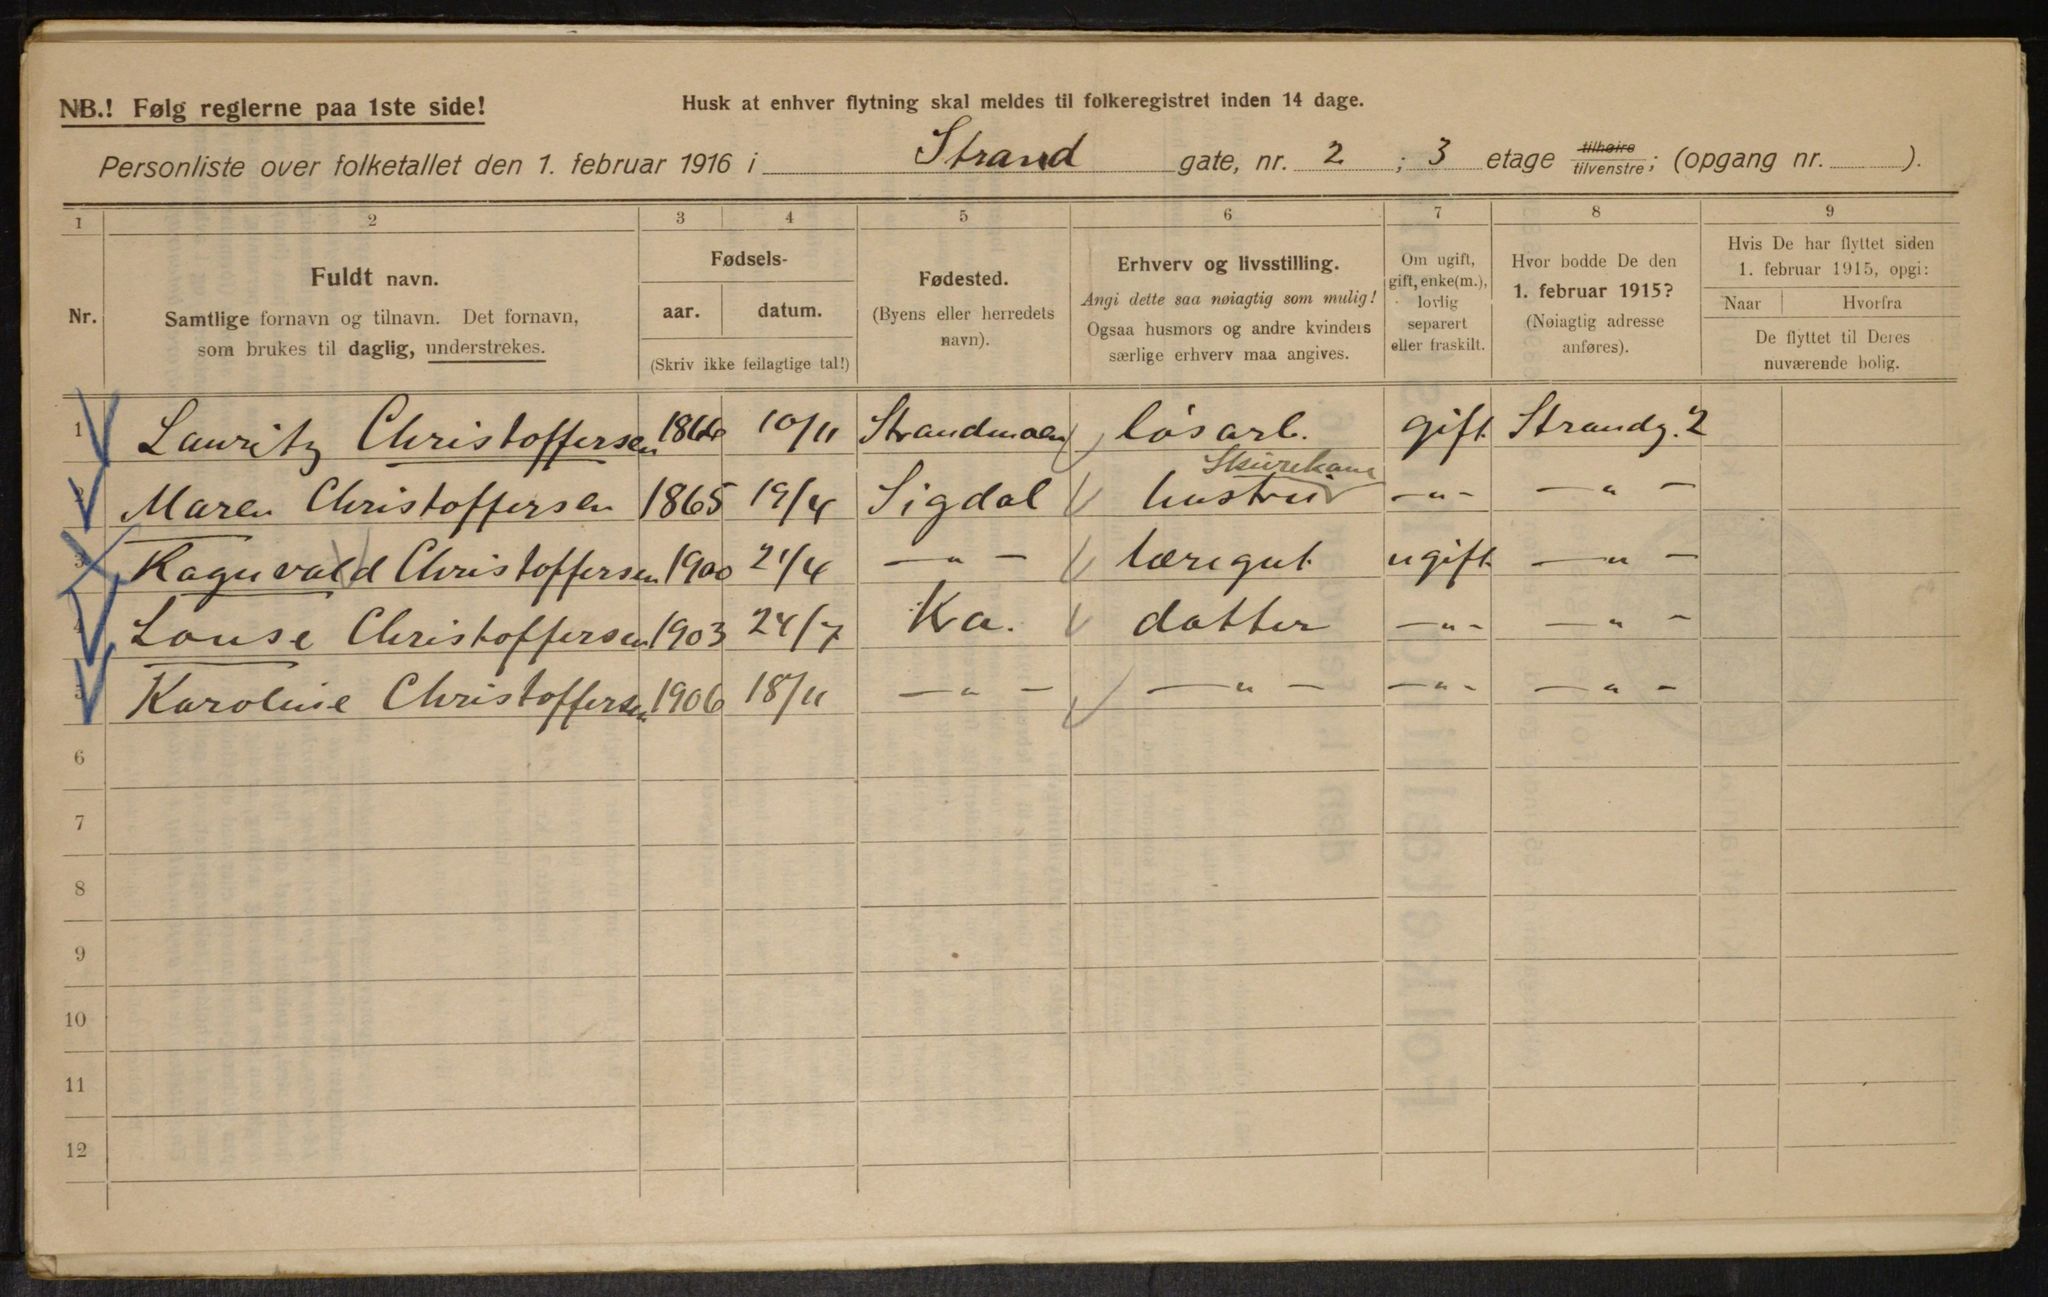 NB.! Følg reglerne paa 1ste side!
Husk at enhver flytning skal meldes til folkeregistret inden 14 dage.
Personliste over folketallet den 1. februar 1916 i Strand gate, nr. 2 ; 3 etage tilhøire tilvenstre; (opgang nr. ).
1 2 3 4 5 6 7 8 9
Nr.
Fuldt navn.
Samtlige fornavn og tilnavn. Det fornavn,
som brukes til daglig, understrekes.
Fødsels-
aar. datum.
(Skriv ikke feilagtige tal!)
Fødested.
(Byens eller herredets
navn).
Erhverv og livsstilling.
Angi dette saa nøiagtig som mulig!
Ogsaa husmors og andre kvinders
særlige erhverv maa angives.
Om ugift,
gift, enke(m.),
lovlig
separert
eller fraskilt.
Hvor bodde De den
1. februar 1915?
(Nøiagtig adresse
anføres).
Hvis De har flyttet siden
1. februar 1915, opgi:
Naar Hvorfra
De flyttet til Deres
nuværende bolig.
1 Lauritz Christoffersen 10/11 løsarb. gift Strandg. 2
Skurekone
2 Maren Christoffersen 1865 19/4 Sigdal hustru —„— —„—
3 Ragnvald Christoffersen 1900 21/4 —„— læregut ugift —„—
4 Louse Christoffersen 1903 24/7 Kra. datter —„— —„—
5 Karoline Christoffersen 1906 18/11 —„— —„— —„— —„—
6
7
8
9
10
11
12